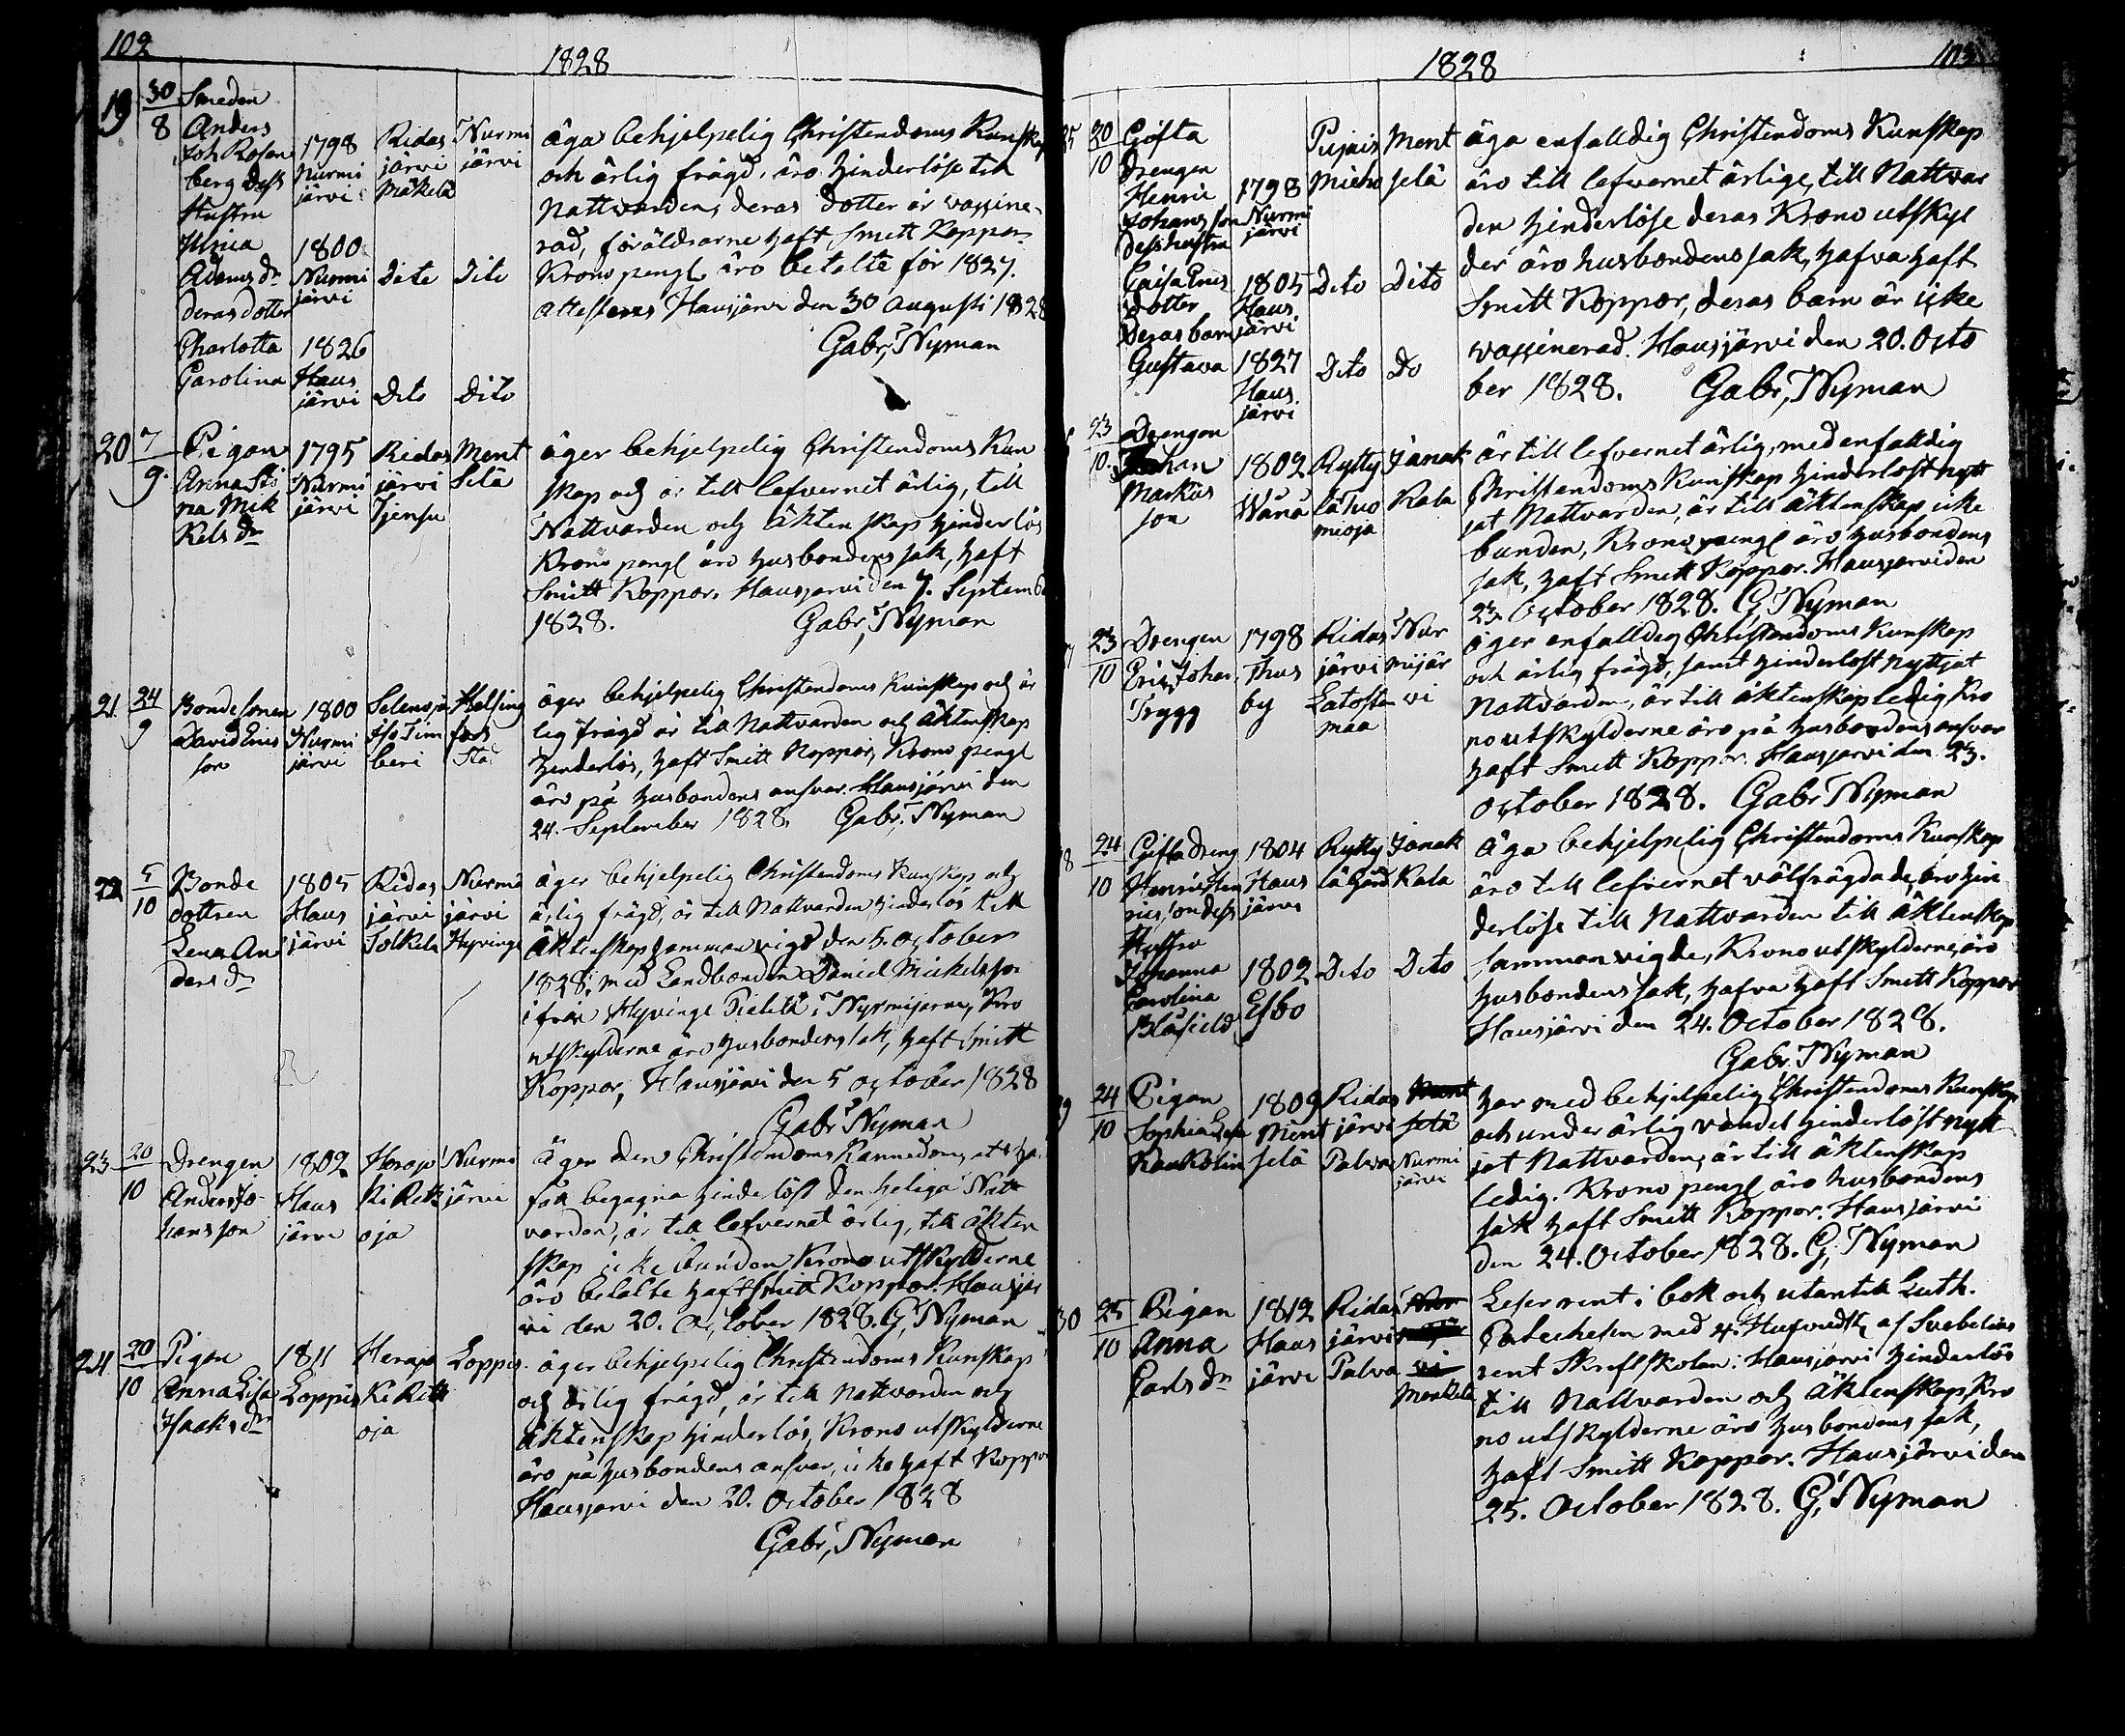 102
1828
19 30/8 Smeden
Anders
Joh Rosen
berg Dess
Hustru
Ulrica
Adams dr
deras dotter
Charlotta
Carolina
1798
Nurmi
järvi
1800
Nurmi
järvi
1826
Haus
järvi
Ridas
järvi
Mäkelä
Dito
Dito
Nurmi
järvi
Dito
Dito
äga behjelpelig Christendoms Kunskap
och ärlig frägd, äro hinderlöse till
Nattvarden, deras dotter är vaccine-
rad, föräldrarne haft Smitt Koppor
Krono pengl äro betalte för 1827.
attesteras Hausjärvi den 30 Augusti 1828
Gabr, Nyman
20 7/9. Pigan
Anna Sti
na Mik
kels dr
1795
Nurmi
järvi
Ridas
järvi
Tjensu
Ment
selä
äger behjelpelig Christendoms Kun
skap och är till lefvernet ärlig, till
Nattvarden och äktenskap hinderlös
Krono pengl äro husbondens sak, haft
Smitt Koppor. Hausjärvi den 7. Septemb
1828. Gabr, Nyman
21. 24/9 Bondesonen
David Erics
son
1800
Nurmi
järvi
beri
Helsing
fors
Stad
äger behjelpelig Christendoms Kunskap och är
lig frägd är till Nattvarden och äktenskap
hinderlös, haft Smitt Koppor, Krono pengl
äro på husbondens ansvar. Hausjärvi den
24. September 1828. Gabr, Nyman
22 5/10 Bonde
dottren
Lena An
ders dr
1805
Haus
järvi
Ridas
järvi
Tolkela
Nurmi
järvi
Hyvinge
äger behjelpelig Christendoms Kunskap och
ärlig frägd, är till Nattvarden hinderlös till
äktenskap sammanvigd den 5. October
1828. med Landbonden Daniel Mickelsson
ifrån Hyvinge i Nurmijärvi, Kro
utskylderne äro husbondens sak, haft Smitt
Koppor, Hausjärvi den 5 October 1828
Gabr Nyman
23 20/10 Drengen
Anders Jo-
hansson
1802
Haus
järvi
Herajo
ki Rett
oja
Nurmi
järvi
Äger den Christendoms Kannedom, att
får begagna hinderlöst den heliga Natt
varden, är till lefvernet ärlig, till äkten
skap icke bunden Krono utskylderne
äro betalte haft Smitt Koppor. Hausjär
vi den 20. October 1828. G, Nyman
24 20/10 Pigan
Anna Lisa
Isaks dr
1811
Loppis
Herajo
ki Rett
oja
Loppis
äger behjelpelig Christendoms Kunskap
och ärlig frägd, är till Nattvarden och
äktenskap hinderlös, Krono utskylderne
äro på husbondens ansvar, icke haft Koppor
Hausjärvi den 20. October 1828
Gabr, Nyman
1828
103
25 20/10 Gifta
Drengen
Henric
Johansson
Dess hustru
Caisa Erics
dotter
Deras barn
Gustava
1798
Nurmi
järvi
1805
Haus
järvi
1827
Haus
järvi
Dito
Dito
Ment
selä
Dito
Do
äga enfalldig Christendoms Kunskap
äro till lefvernet ärlige, till Nattvar
den hinderlöse deras Krono utskyl
der äro husbondens sak, hafva haft
Smitt Koppor, deras barn är icke
vaccinerad. Hausjärvi den 20. Octo
ber 1828. Gabr, Nyman
23/10. Drengen
Johan
Markus
son
1802
Wånå
Rytty
lä Tuo
mioja
Janak
kala
är till lefvernet ärlig, med enfalldig
Christendoms Kunskap hinderlöst nytt
jat Nattvarden, är till äktenskap icke
bunden, Krono pengl äro husbondens
sak, haft Smitt Koppor. Hausjärvi den
23. October 1828. G, Nyman
23/10 Drengen
Eric Johan
Trygg
1798
Thus
by
Ridas
järvi
Latosten
maa
Nur
mijär
vi
äger enfalldig Christendoms Kunskap
och ärlig frägd, samt hinderlöst nyttjat
Nattvarden, är till äktenskap ledig, Kro
no utskylderne äro på husbondens ansvar
haft Smitt Koppor. Hausjärvi den 23.
October 1828. Gabr Nyman
28 24/10 Gifta Dreng
Henric Hen
ricsson dess
Hustru
Johanna
Carolina
Blåfield
1804
Haus
järvi
1802
Esbo
Rytty
lä Gård
Dito
Janak
kala
Dito
Äga behjelpelig Christendoms Kunskap
äro till lefvernet välfrägdade, äro hin
derlöse till Nattvarden till äktenskap
sammanvigde, Krono utskylderne äro
husbondens sak, hafva haft Smitt Koppor
Hausjärvi den 24. October 1828.
Gabr. Nyman
29 24/10 Pigan
Sophia Lisa
1809
Ment
selä
Ridas
järvi
Palva
Ment
selä
Nurmi
järvi
har med behjelpelig Christendoms Kunskap
och under ärlig vandel hinderlöst nytt
jat Nattvarden, är till äktenskap
ledig. Krono pengl äro husbondens
sak haft Smitt Koppor. Hausjärvi
den 24. October 1828. G, Nyman
30 25/10 Pigan
Anna
Carls dr
1812
Haus
järvi
Ridas
järvi
Palva
Nur
mijär
vi
Läser rent i bok och utantill Luth.
Catechesen med 4. Hufvudst, af Svebelius
rent Skriftskolan i Hausjärvi hinderlös
till Nattvarden och äktenskap Kro
no utskylderne äro husbondens sak,
haft Smitt Koppor. Hausjärvi den
25. October 1828. G, Nyman